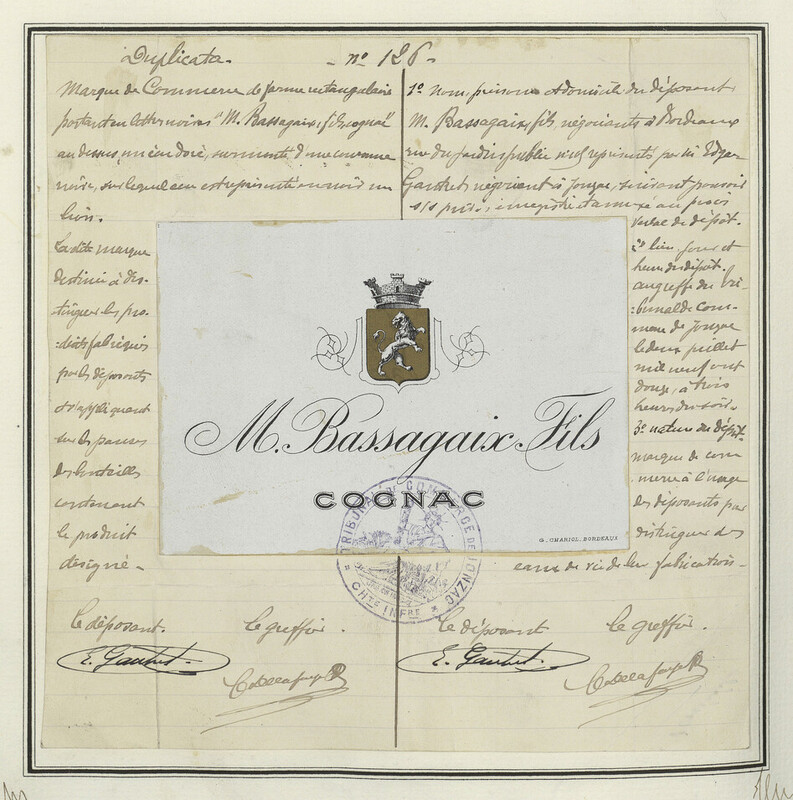 Duplicata. - nº 126 -
Marque de Commerce de forme rectangulaire
portant en lettres noires "M. Bassagaix, fils cognac"
au dessus, un écu doré, surmonté d'une couronne
noire, sur lequel écu est représenté en noir un
lion.
La dite marque
destinée à dis-
tinguer les pro-
duits fabriqués
par les déposants
et s'appliquent
sur les panses
des bouteilles
contenant
le produit
désigné -
1º nom, prénoms et domicile du déposant
M. Bassagaix, fils, négociants à Bordeaux
rue du Jardin public représentés par Edgar
négociant à Jonzac, suivant pouvoir
s/s privé, enregistré et annexé au procès
verbal de dépôt.
2º lieu, jour et
heure du dépôt.
au greffe du tri-
bunal de com-
merce de Jonzac
le deux juillet
mil neuf cent
douze, à trois
heures du soir.
3º nature du dépôt.
marque de com
merce à l'usage
des déposants par
distinguer des
eaux de vie de leur fabrication -
M. Bassagaix Fils
COGNAC
G. CHARIOL. BORDEAUX
TRIBUNAL DE COMMERCE DE JONZAC
CHTE INFRE
le déposant. le greffier. le déposant le greffier.